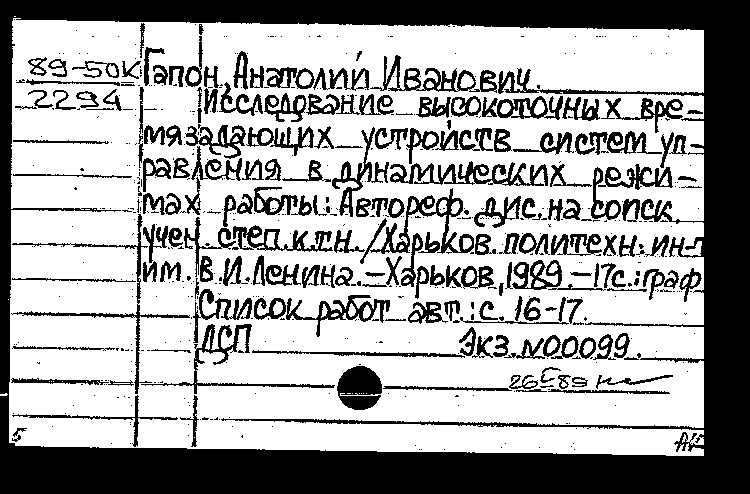 89-50К Гапон, Анатолий Иванович.
2294 Исследование высокоточных вре-
мязадающих устройств систем уп-
равления в динамических режи-
мах работы: Автореф. дис. на соиск.
учен. степ. к.т.н. /Харьков. политехн. ин-т
им. В.И.Ленина. – Харьков, 1989. – 17с.: граф
Список работ авт.: с. 16-17.
ДСП Экз. №00099.
5